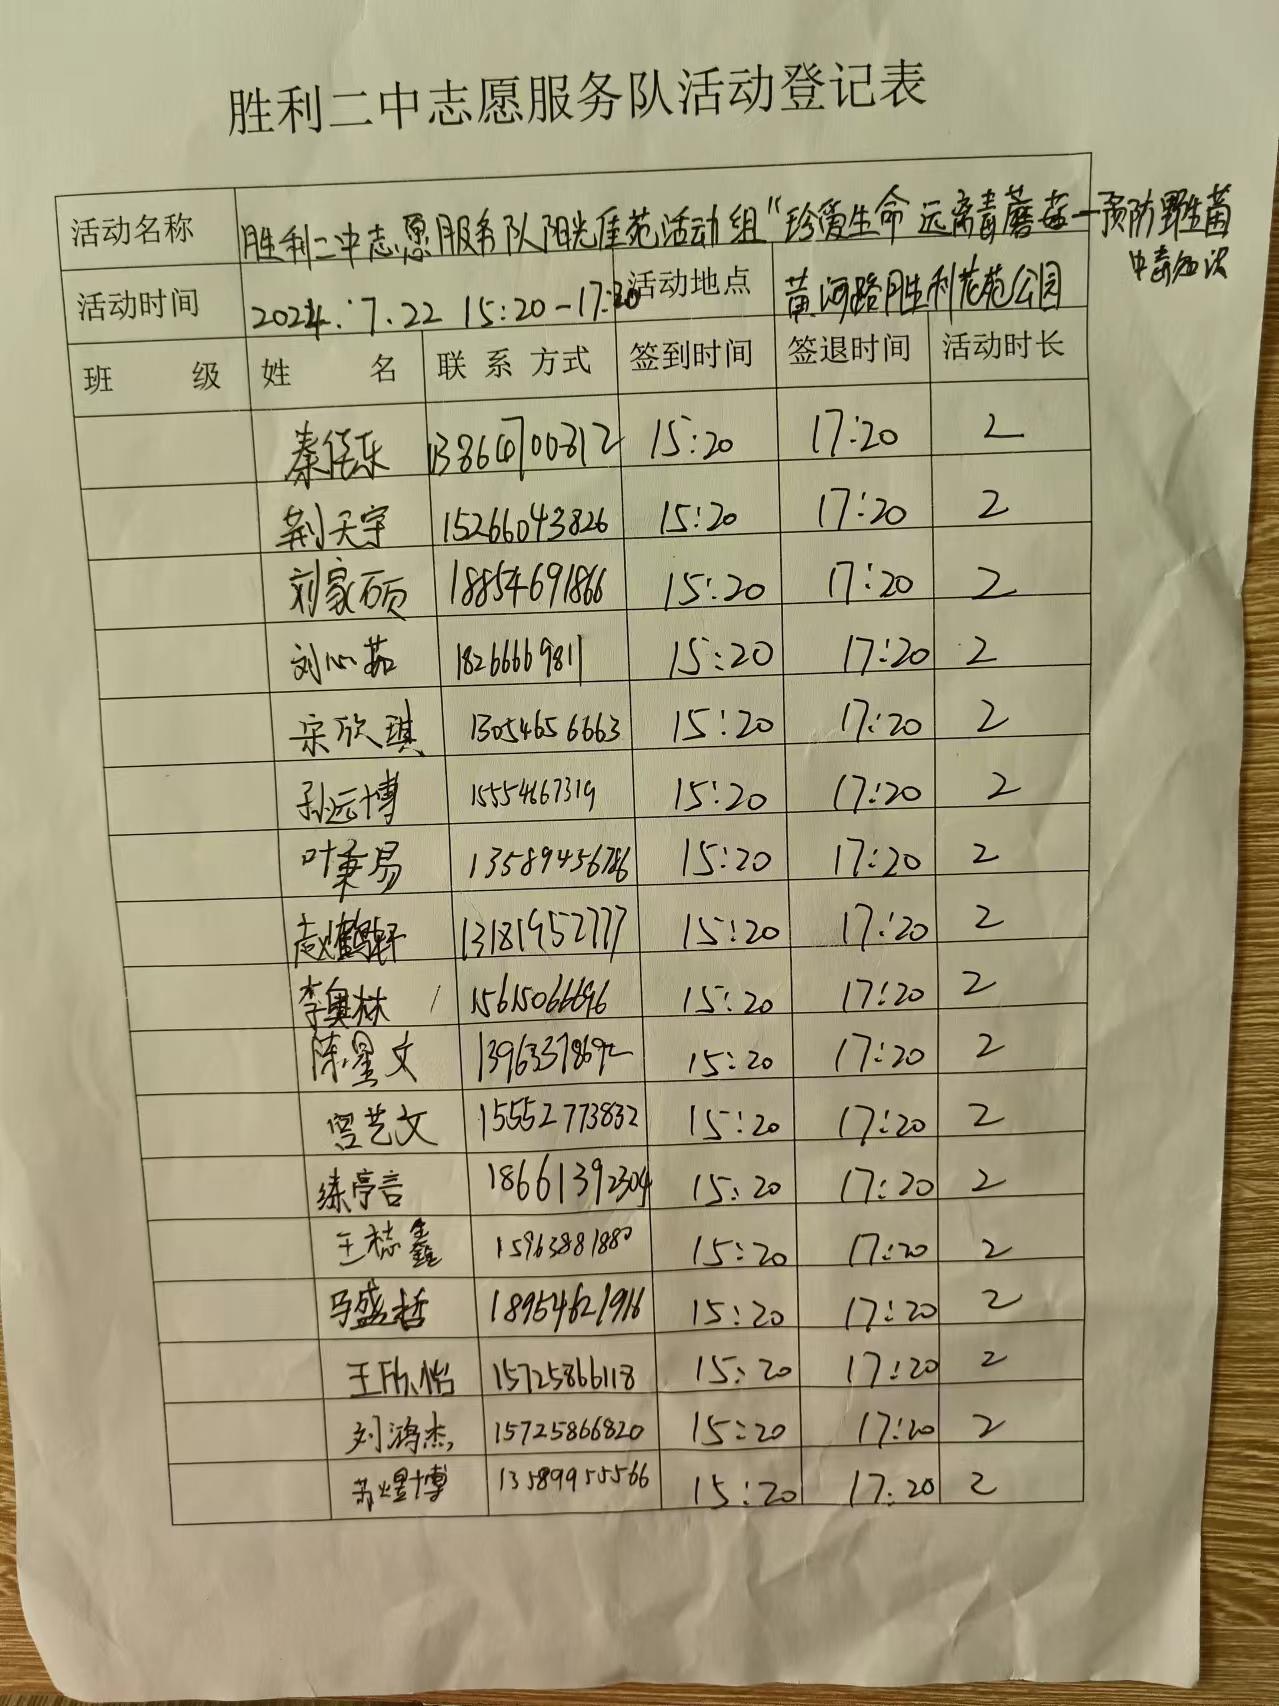 胜利二中志愿服务队活动登记表
活动名称 胜利二中志愿服务队阳光佳苑活动组"珍爱生命 远离毒蘑菇—预防野生菌
中毒知识
活动时间 2024.7.22 15:20-17:20 活动地点 黄河路胜利花苑公园
班 级 姓 名 联系方式 签到时间 签退时间 活动时长
秦 乐 13864700312 15:20 17:20 2
荆天宇 15266043826 15:20 17:20 2
刘家硕 18854691866 15:20 17:20 2
刘心茹 18266669811 15:20 17:20 2
宋欣琪 13054656663 15:20 17:20 2
孙远博 15554667319 15:20 17:20 2
叶秉易 13589456786 15:20 17:20 2
赵鹤轩 13181952777 15:20 17:20 2
李奥林 15615066696 15:20 17:20 2
陈星文 13963378692 15:20 17:20 2
曾艺文 15552773832 15:20 17:20 2
练亭言 18661392304 15:20 17:20 2
王 鑫 15963881880 15:20 17:20 2
马盛哲 18954621916 15:20 17:20 2
王欣怡 15725866118 15:20 17:20 2
刘鸿杰 15725866820 15:20 17:20 2
苏煜博 13589955566 15:20 17:20 2